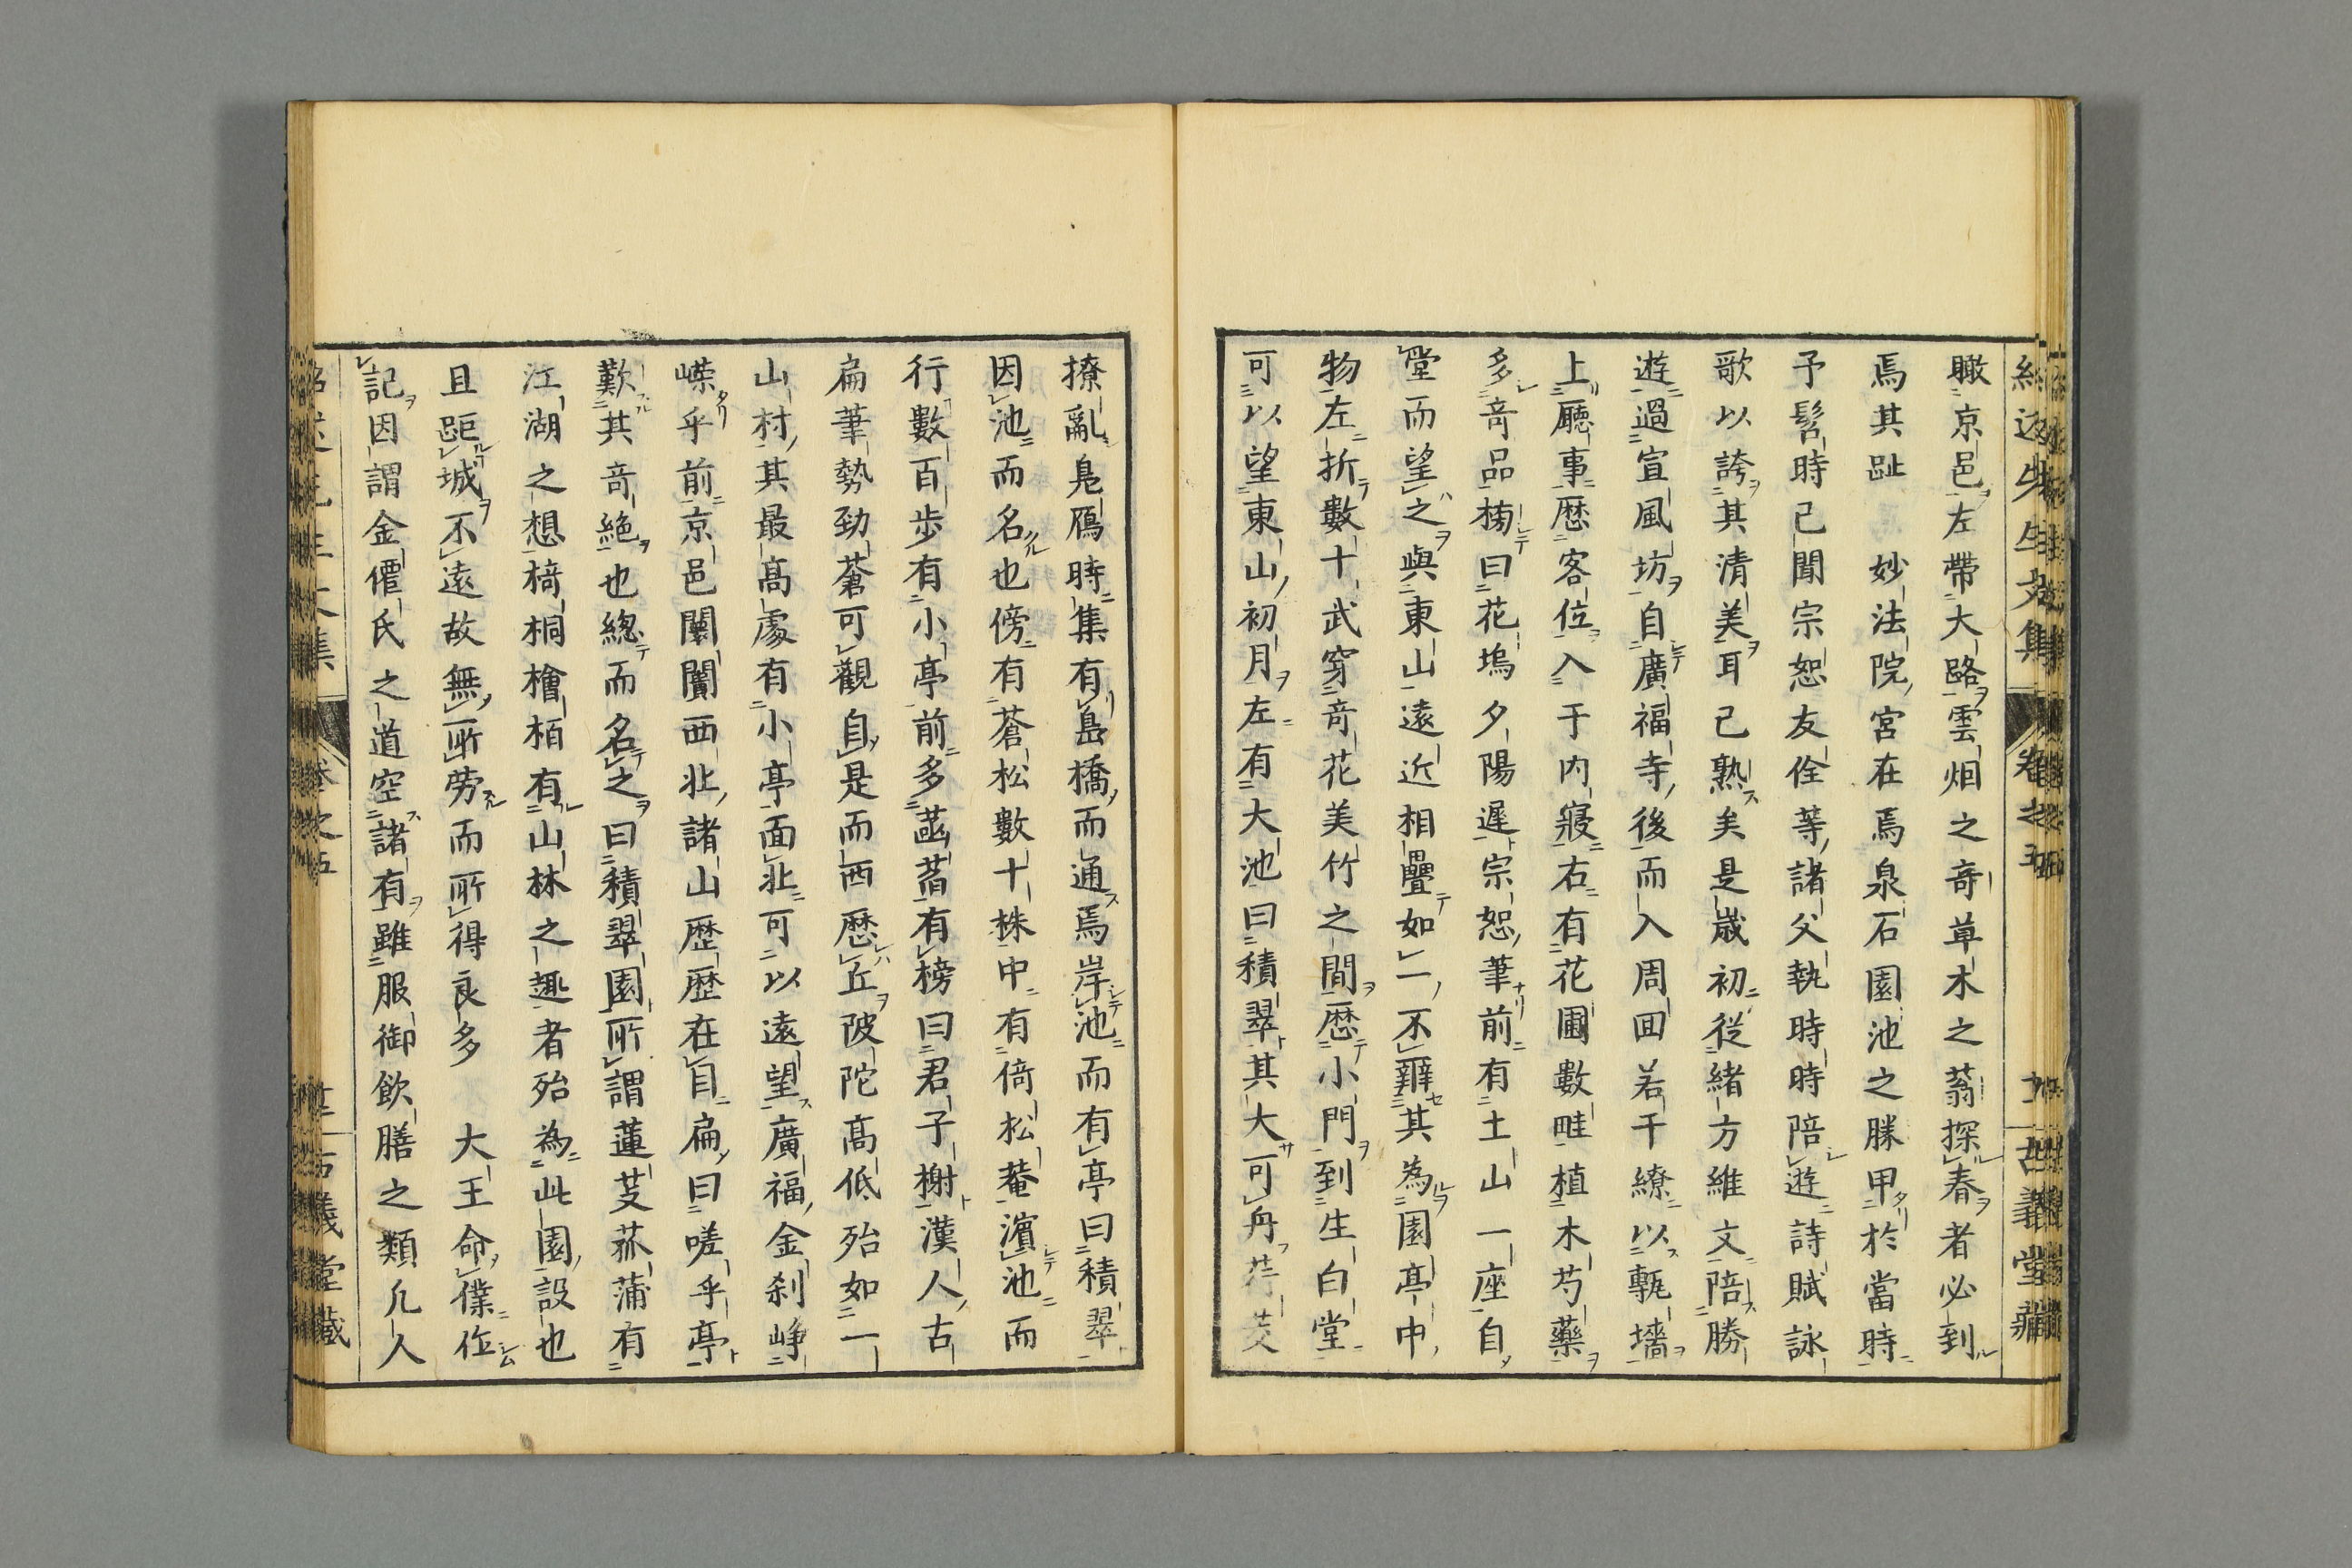 瞰京邑左帶大路雲烟之竒草木之蓊探春者必到
焉其趾　妙法院宮在焉泉石園池之勝甲於當時
予髫時已聞宗恕友佺等諸父執時時陪遊詩賦詠
歌以誇其清美耳已熟矣是歲初従緒方維文陪勝
遊過宣風坊自廣福寺後而入周囬若干繚以甎墻
上廳事歷客位入于内寢右有花圃數畦植木芍藥
多竒品榜曰花塢夕陽遲宗恕筆前有土山一座自
堂而望之與東山遠近相疊如一不辭其為園亭中
物左折數十武穿竒花美竹之間歷小門到生白堂
可以望東山初月左有大池曰積翠其大可舟荇芡
撩亂鳬鴈時集有島橋而通焉岸池而有亭曰積翠
因池而名也傍有蒼松數十株中有倚松菴濵池而
行數百歩有小亭前多菡萏有榜曰君子榭漢人古
扁筆勢勁蒼可觀自是而西歷丘陂陀髙低殆如一
山村其最髙處有小亭面北可以遠望廣福金刹崢
嶸乎前京邑闤闠西北諸山歷歷在目扁曰嗟乎亭
歎其竒絶也總而名之曰積翠園所謂蓮芡菰蒲有
江湖之想椅桐檜栢有山林之趣者殆為此園設也
且距城不遠故無所勞而所得良多　大王命僕作
記因謂金僊氏之道空諸有雖服御飲膳之類凢人
紹述先生文集
卷之五
古義堂藏